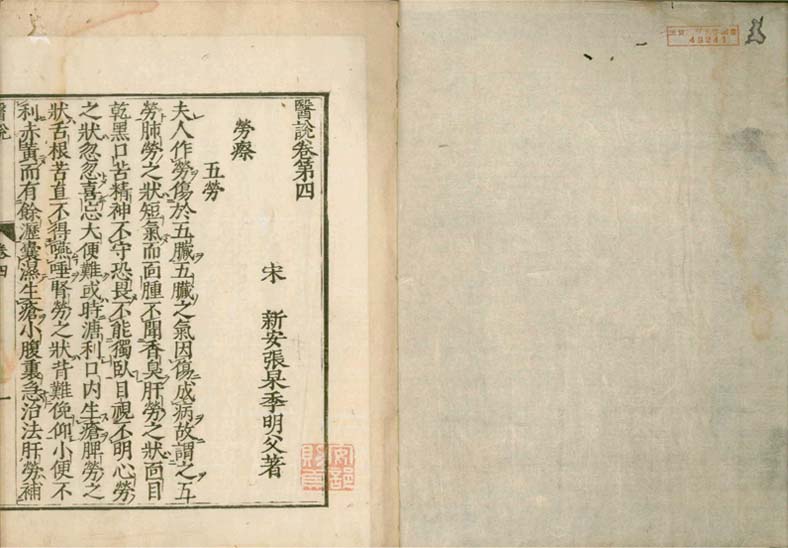 醫說卷第四
宋 新安張杲季明父著
勞瘵
五勞
夫人作勞傷於五臟五臟之氣因傷成病故謂之五
勞肺勞之狀短氣而面腫不聞香臭肝勞之狀面目
乾黑口苦精神不守恐畏不能獨臥目視不明心勞
之狀忽忽喜忘大便難或時溏利口内生瘡脾勞之
狀舌根苦直不得嚥唾腎勞之狀背難俛仰小便不
利赤黃而有餘瀝囊濕生瘡小腹裏急治法肝勞補
醫說
卷四
一
48241